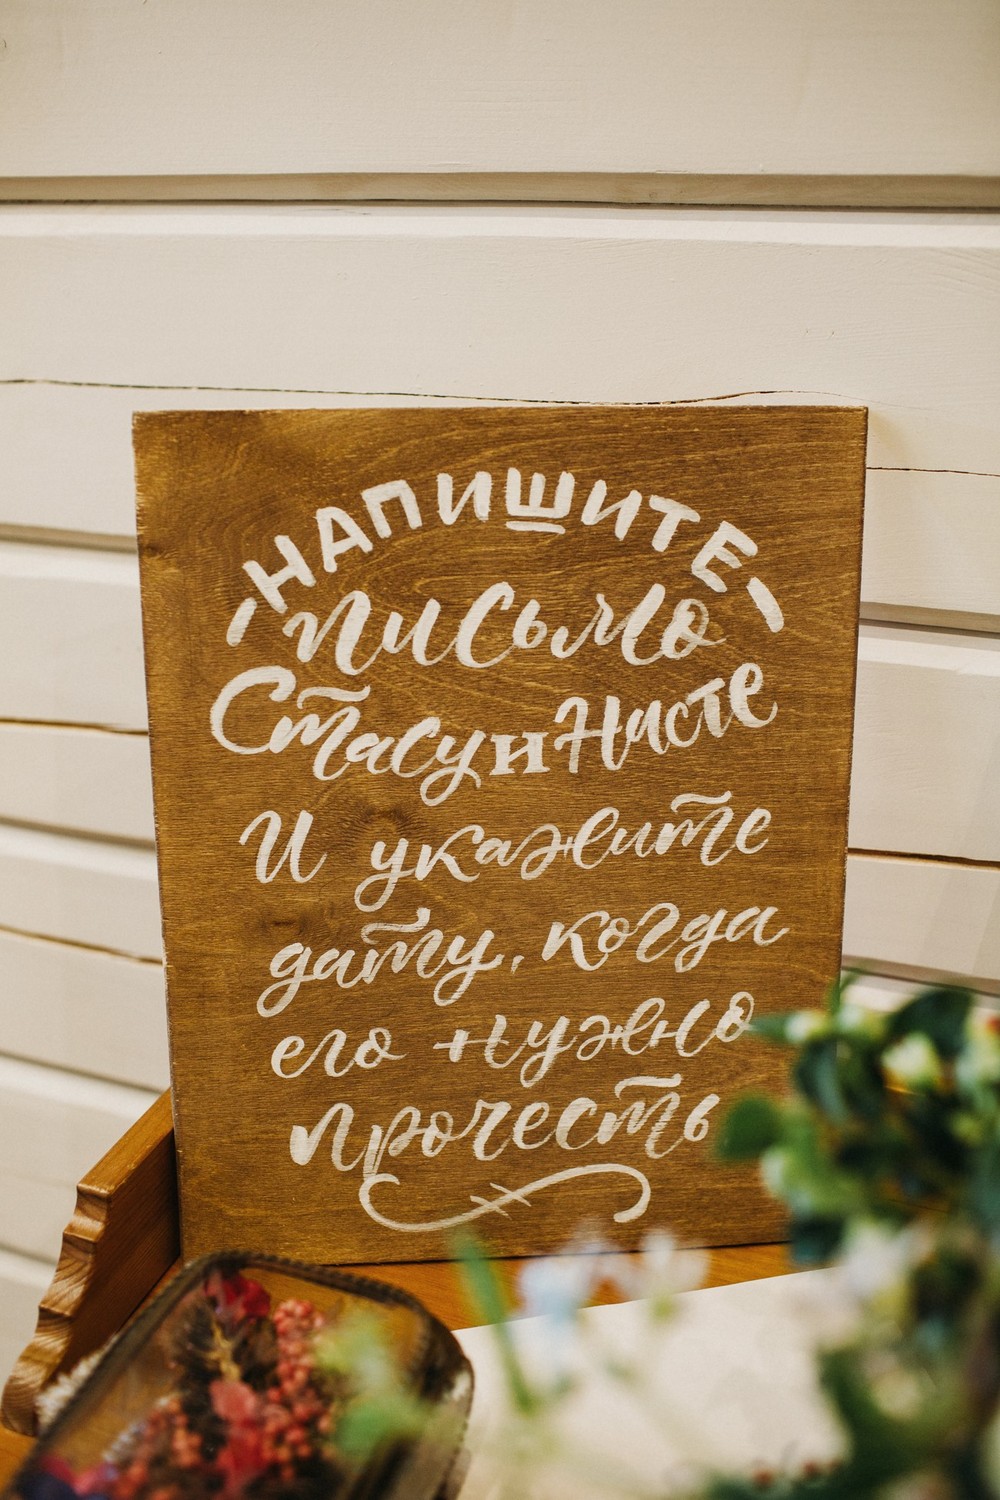 НАПИШИТЕ
письмо
Стасу и Насте
И укажите
дату, когда
его нужно
прочесть